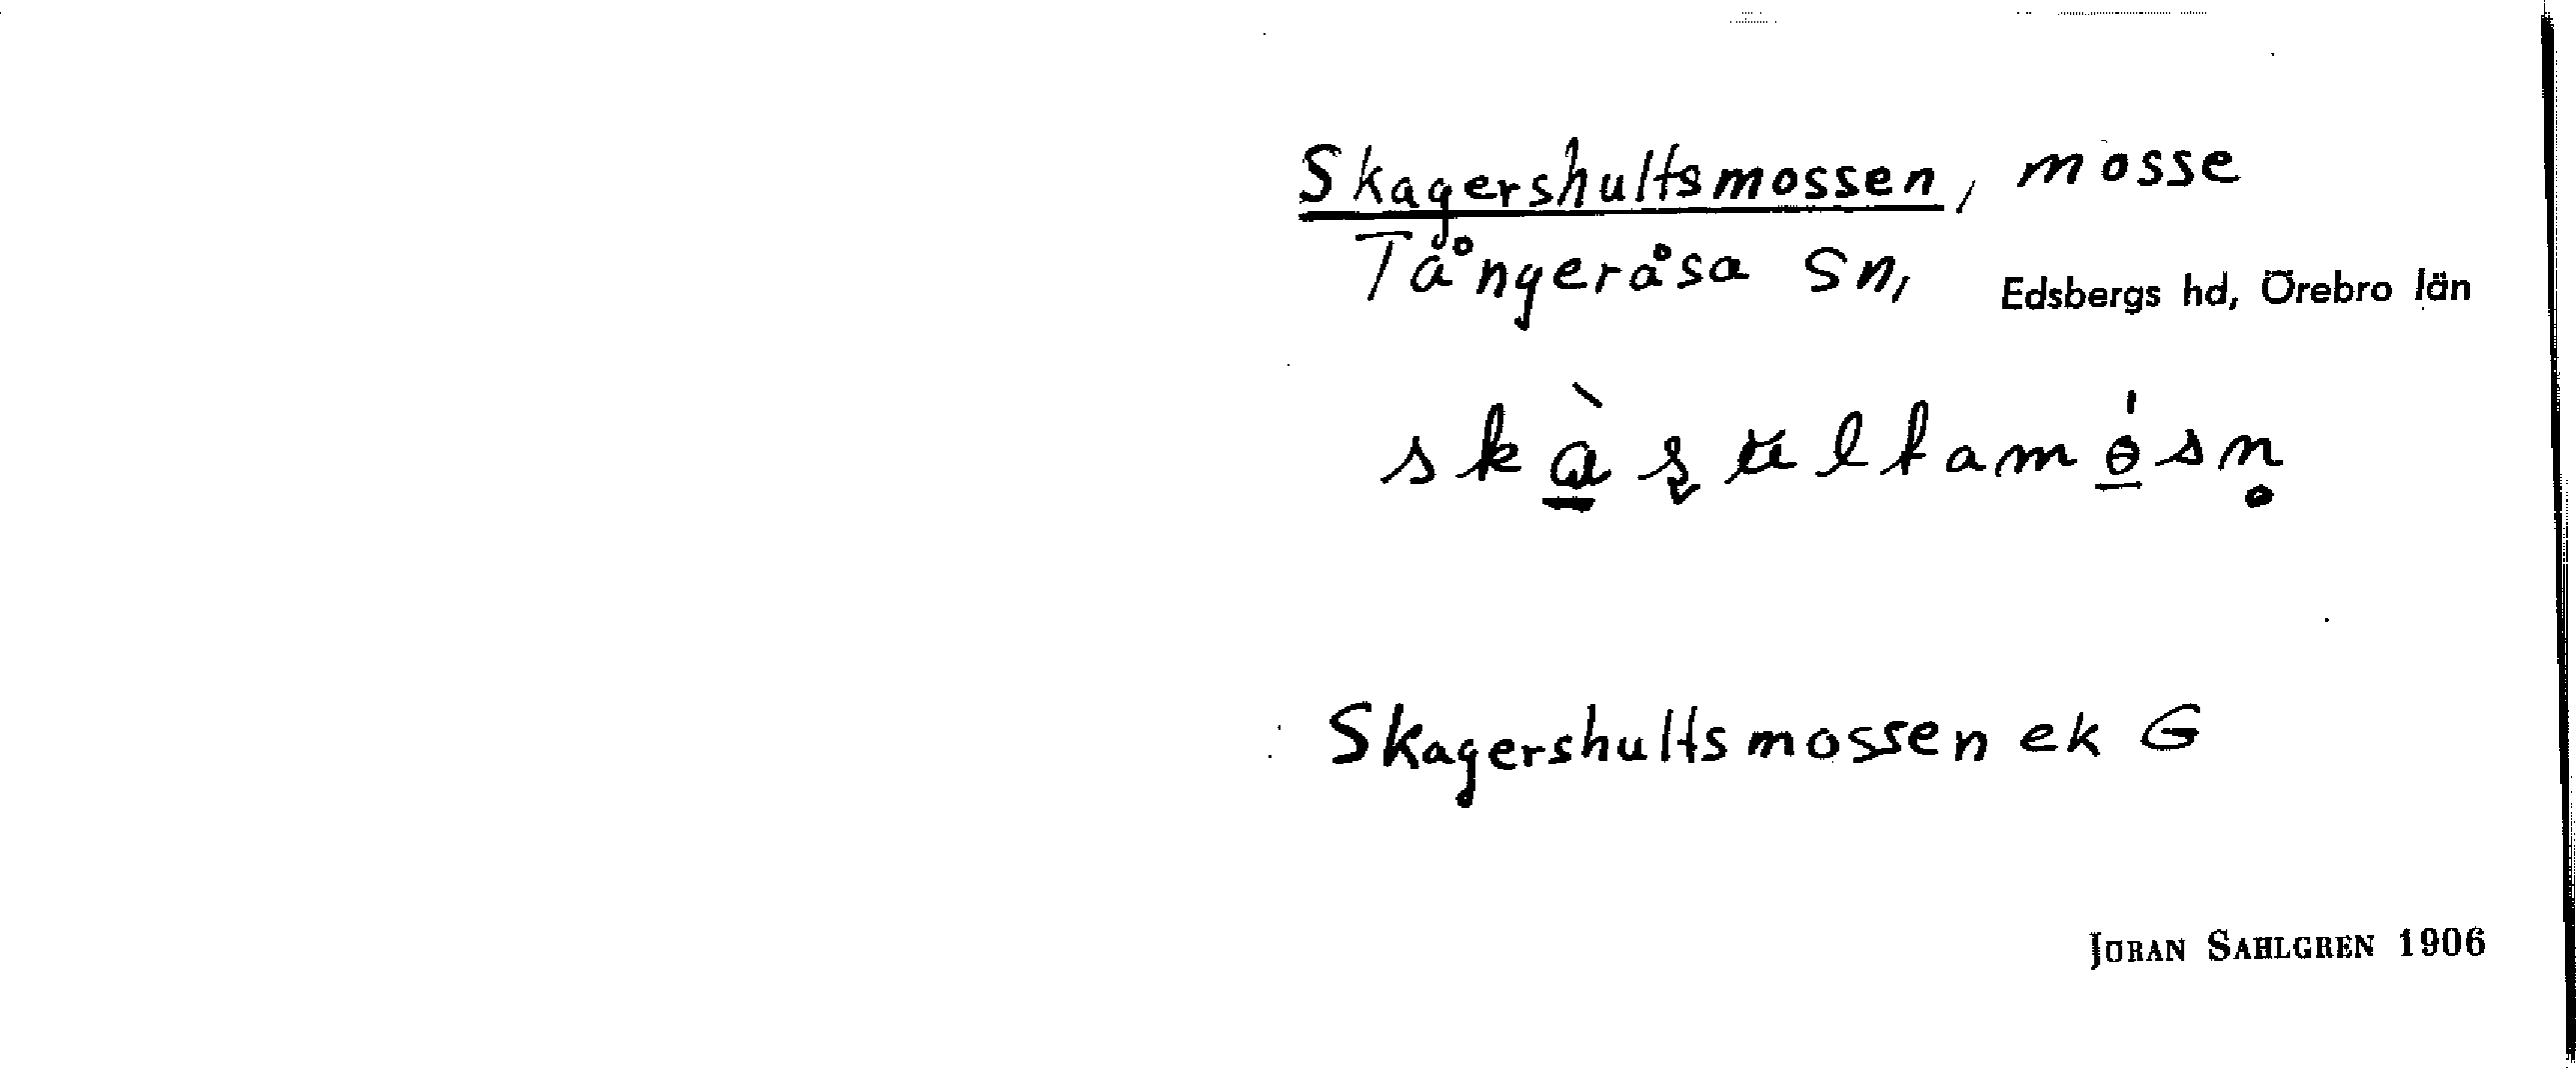 Skagershultsmossen, mosse
Tångeråsa Sn, Edsbergs hd, Örebro län
Skagershultsmossen ek G
JÖRAN SAHLGREN 1906